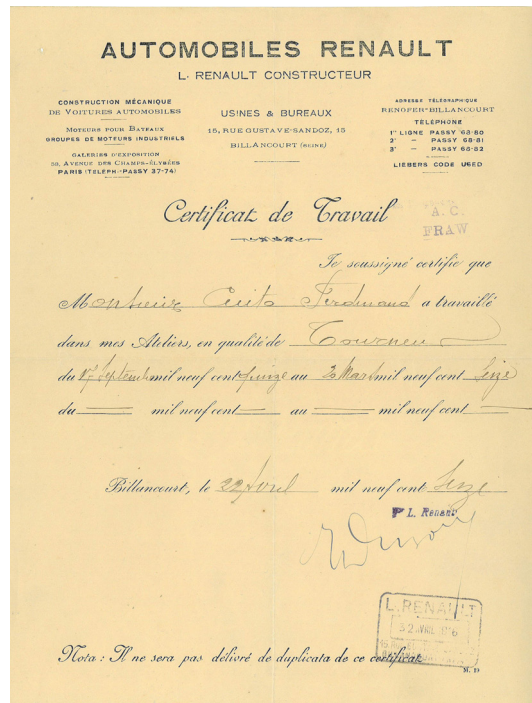 AUTOMOBILES RENAULT
L. RENAULT CONSTRUCTEUR
CONSTRUCTION MÉCANIQUE
DE VOITURES AUTOMOBILES
MOTEURS POUR BATEAUX
GROUPES DE MOTEURS INDUSTRIELS
GALERIES D'EXPOSITION
AVENUE DES CHAMPS-ÉLYSÉES
PARIS (TELEPH.-PASSY 37-74)
USINES & BUREAUX
15, RUE GUSTAVE-SANDOZ, 15
BILLANCOURT (SEINE)
ADRESSE TÉLÉGRAPHIQUE
RENOFER-BILLANCOURT
TÉLÉPHONE
1re LIGNE PASSY 68-80
2e — PASSY 68-81
3e — PASSY 68-82
LIEBERS CODE USED
Certificat de Travail
A.C.
FRAW
Je soussigné certifie que
Monsieur Ferdinand a travaillé
dans mes Ateliers, en qualité de Tourneur
du 17 Septemb mil neuf cent quinze au Mars mil neuf cent Seize
du mil neuf cent au mil neuf cent
Billancourt, le 22 Avril mil neuf cent Seize
Pr L. Renault
L. RENAULT
Nota : Il ne sera pas délivré de duplicata de ce certificat
M. 19